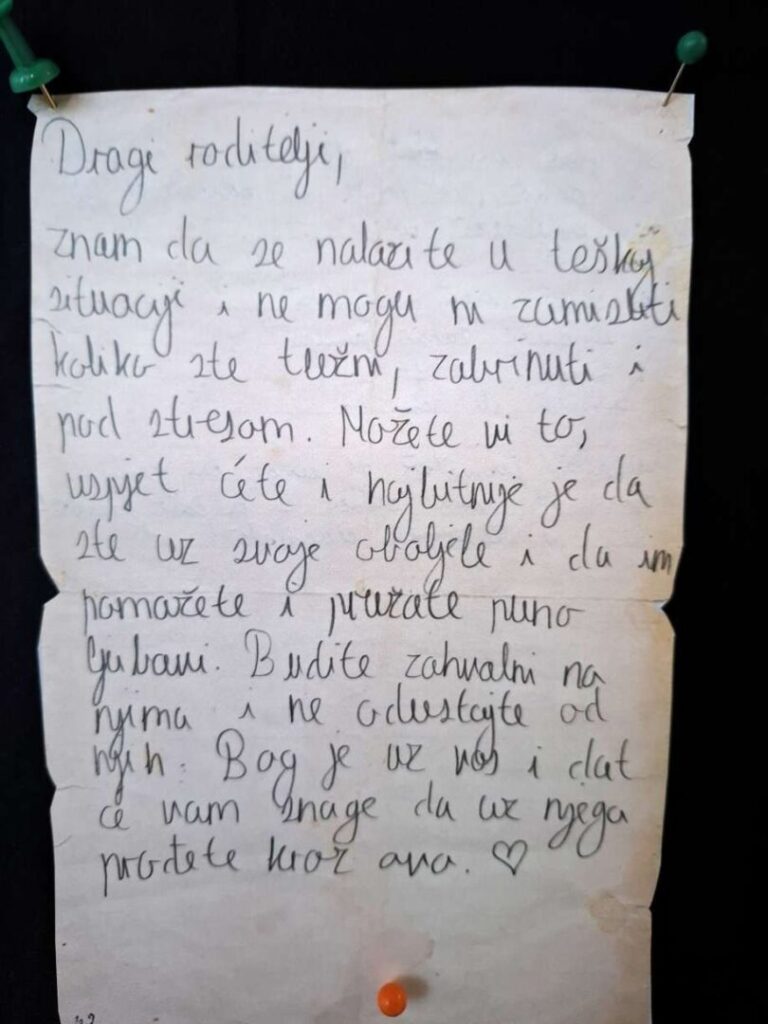 Dragi roditelji,
znam da se nalazite u teškoj
situaciji i ne mogu ni zamisliti
koliko ste tužni, zabrinuti i
pod stresom. Možete vi to,
uspjet ćete i najbitnije je da
ste uz svoje oboljele i da im
pomažete i pružate puno
ljubavi. Budite zahvalni na
njima i ne odustajte od
njih. Bog je uz vas i dat
će vam snage da uz njega
prođete kroz ovo. ♡